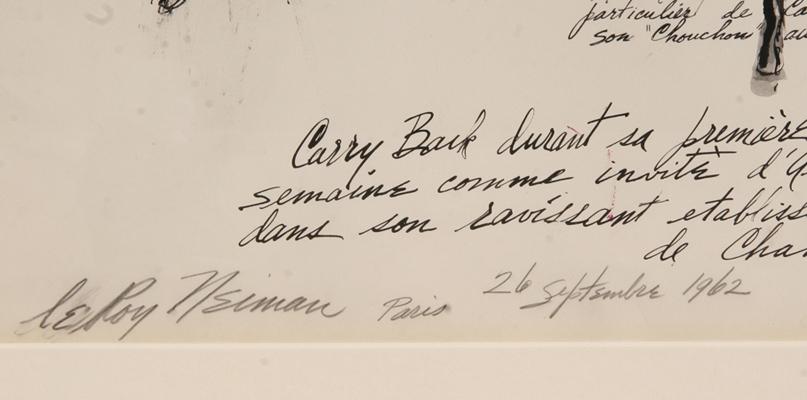 particulier de
son "Chouchou" au
Carry Back durant sa première
semaine comme invité d'
dans son ravissant etabliss
de Chan
LeRoy Neiman Paris 26 Septembre 1962